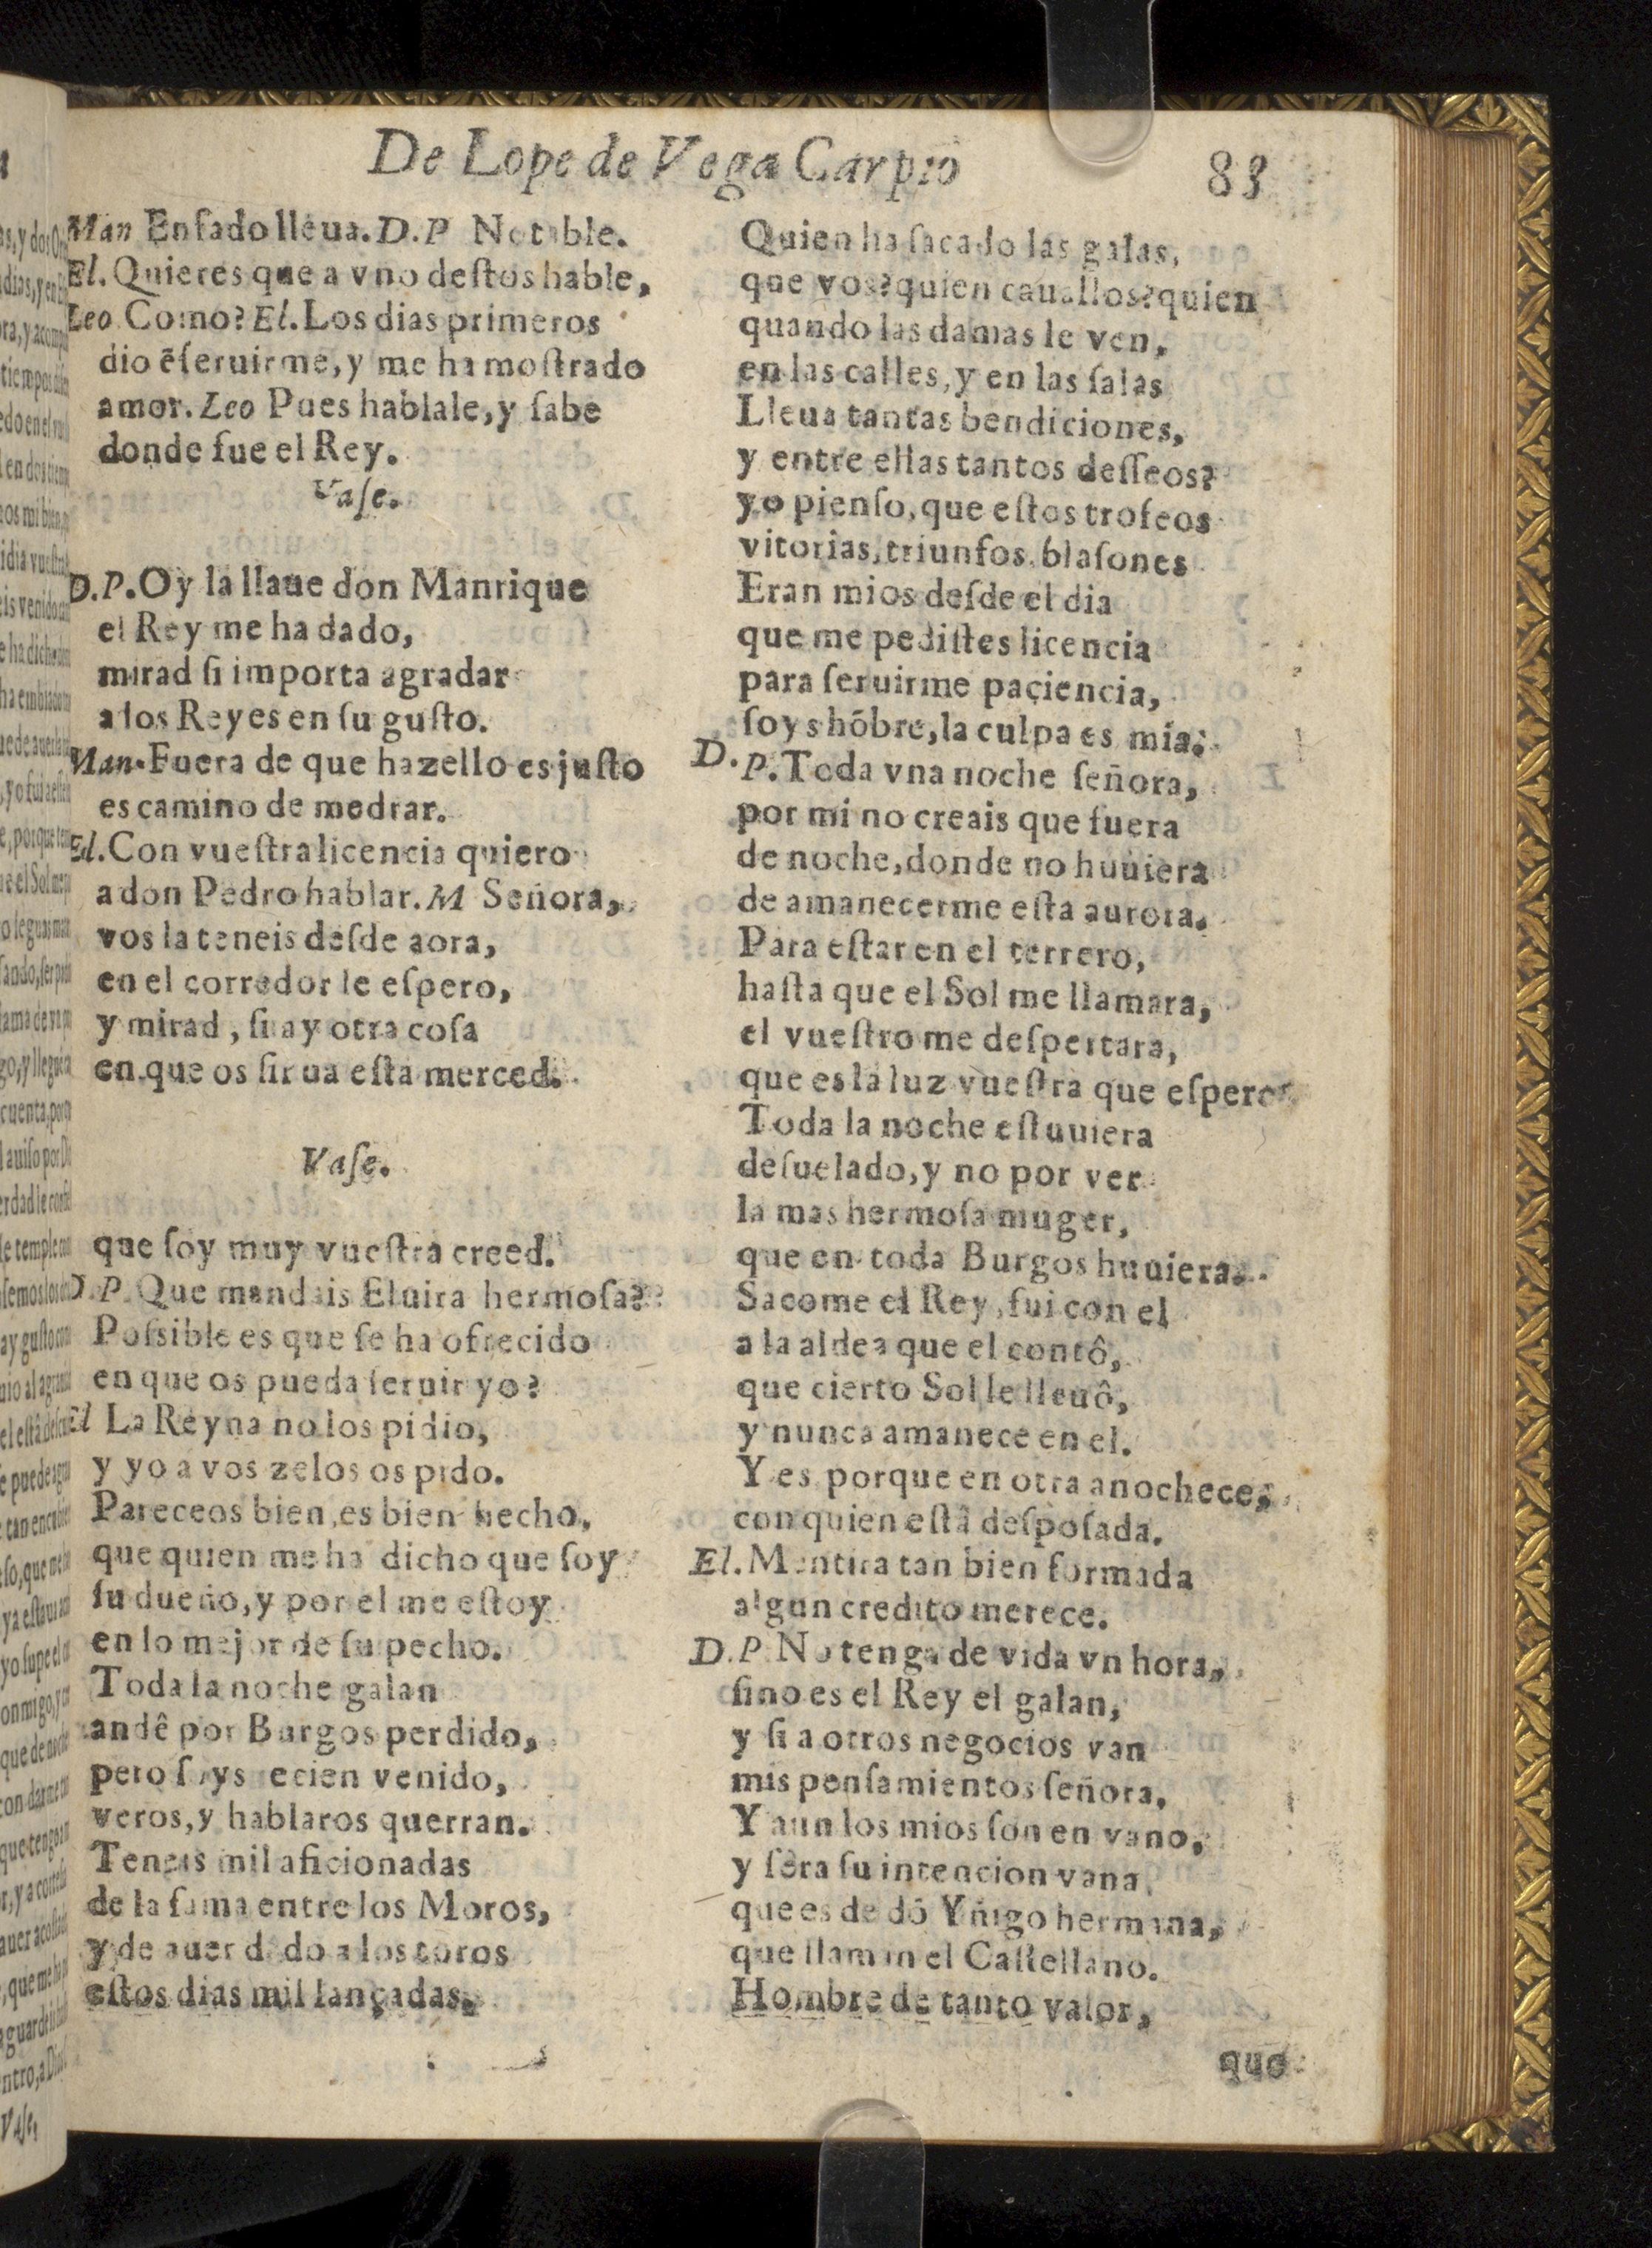 De Lope de Vega Carpio 88
Man Enfado lleua. D.P Notable.
El. Quieres que a vno deſtos hable,
Leo Como? El. Los dias primeros
dio ẽſeruirme, y me ha moſtrado
amor. Leo Pues hablale, y ſabe
donde fue el Rey.
Vaſe.
D.P. Oy la llaue don Manrique
el Rey me ha dado,
mirad ſi importa agradar
a los Reyes en ſu guſto.
Man. Fuera de que hazello es juſto
es camino de medrar.
El. Con vueſtra licencia quiero
a don Pedro hablar. M Señora,
vos la teneis deſde aora,
en el corredor le eſpero,
y mirad, ſi ay otra coſa
en que os ſirua eſta merced.
Vaſe.
que ſoy muy vueſtra creed.
D.P. Que mandais Eluira hermoſa?
Poſsible es que ſe ha ofrecido
en que os pueda ſeruir yo?
El La Reyna no los pidio,
y yo a vos zelos os pido.
Pareceos bien, es bien hecho,
que quien me ha dicho que ſoy
ſu dueño, y por el me eſtoy
en lo mejor de ſu pecho.
Toda la noche galan
andê por Burgos perdido,
pero ſoys recien venido,
veros, y hablaros querran.
Teneis mil aficionadas
de la fama entre los Moros,
y de auer dado a los toros
eſtos dias mil lançadas.
Quien ha ſacado las galas,
que vos? quien cauallos? quien
quando las damas le ven,
en las calles, y en las ſalas
Lleua tantas bendiciones,
y entre ellas tantos deſſeos?
yo pienſo, que eſtos trofeos
vitorias, triunfos, blaſones
Eran mios deſde el dia
que me pediſtes licencia
para ſeruirme paçiencia,
ſoys hõbre, la culpa es mia.
D.P. Toda vna noche ſeñora,
por mi no creais que fuera
de noche, donde no huuiera
de amanecerme eſta aurora.
Para eſtar en el terrero,
haſta que el Sol me llamara,
el vueſtro me deſpertara,
que es la luz vueſtra que eſpero
Toda la noche eſtuuiera
deſuelado, y no por ver
la mas hermoſa muger,
que en toda Burgos huuiera.
Sacome el Rey, fui con el
a la aldea que el contô,
que cierto Sol le lleuô,
y nunca amanece en el.
Y es porque en otra anochece,
con quien eſtâ deſpoſada.
El. Mentira tan bien formada
algun credito merece.
D.P No tenga de vida vn hora,
ſino es el Rey el galan,
y ſi a otros negocios van
mis penſamientos ſeñora.
Y aun los mios ſon en vano,
y ſera ſu intencion vana,
que es de dõ Yñigo hermana,
que llaman el Caſtellano.
Hombre de tanto valor,
que